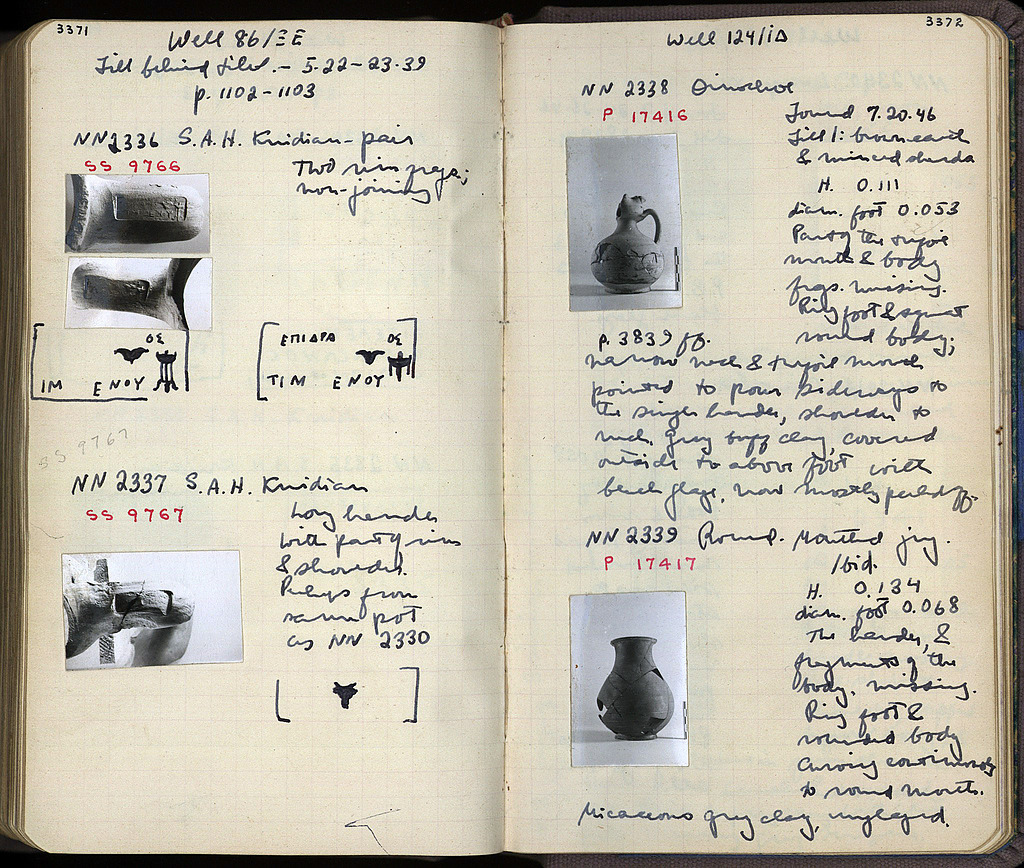 3371
Well 86/ΞΕ
Fill behind tiles. - 5-22-23-39
p. 1102-1103
NN2336 S.A.H. Knidian - pair
SS 9766
Two rim frags;
non-joining
ΟΣ
ΙΜ ΕΝΟΥ
ΕΠΙΔΡΑ ΟΣ
ΤΙΜ ΕΝΟΥ
SS 9767
NN 2337 S.A.H. Knidian
SS 9767
Long handle
with part of rim
& shoulder.
Perhaps from
same pot
as NN 2330
3372
Well 124/ΙΔ
NN 2338 Oinochoe
P 17416
Found 7.20.46
Fill 1: brown earth
& mixed sherds
H. 0.111
diam. foot 0.053
Part of the trefoil
mouth & body
frags. missing.
Ring foot & squat
round body;
p. 3839 ff.
narrow neck & trefoil mouth
pointed to pour sideways to
the single handle, shoulder to
neck. Gray buff clay, covered
outside to above foot with
black glaze, now mostly peeled off.
NN 2339 Round-Mouthed jug.
P 17417
Ibid.
H. 0.134
diam. foot 0.068
The handle, &
fragments of the
body, missing.
Ring foot &
rounded body
curving continuously
to round mouth.
Micaceous grey clay, unglazed.